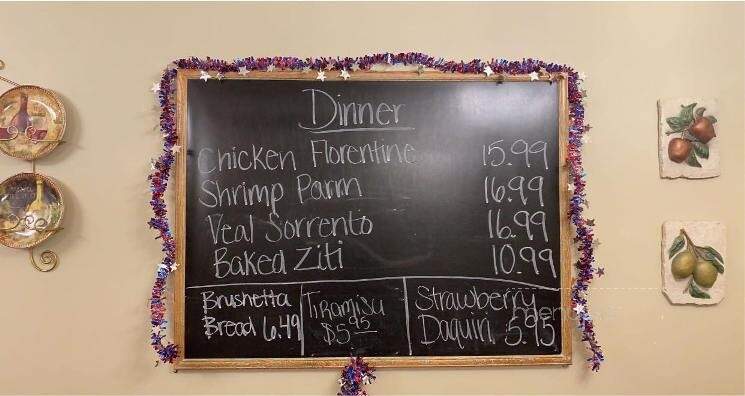 Dinner
Chicken Florentine 15.99
Shrimp Parm 16.99
Veal Sorrento 16.99
Baked Ziti 10.99
Brushetta
Bread 6.49
Tiramisu
$5.95
Strawberry
Daquiri 5.95